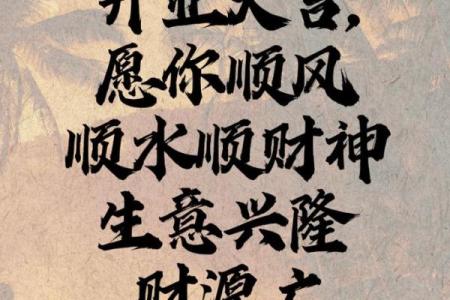 开业大吉，
愿你顺风
顺水顺财神
生意兴隆
财源广